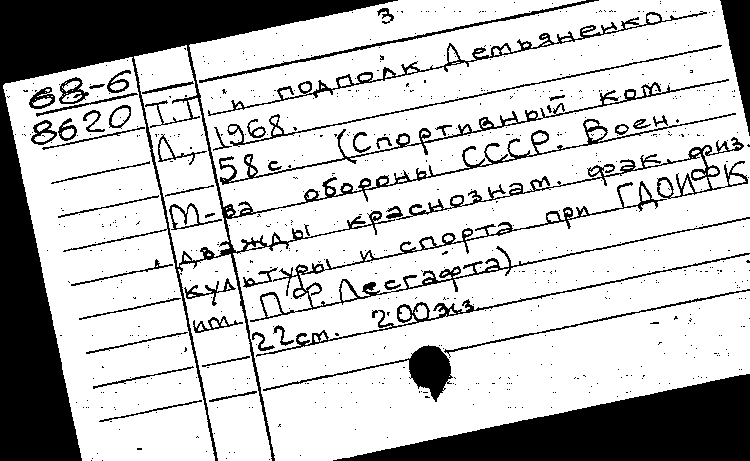 3
68-6
8620
Т.Т. и подполк. Демьяненко.
Л., 1968.
58 с. (Спортивный ком.
М-ва обороны СССР. Воен.
дважды краснознам. фак. физ.
культуры и спорта при ГДОИФК
им. П.Ф. Лесгафта).
22 см. 200 экз.